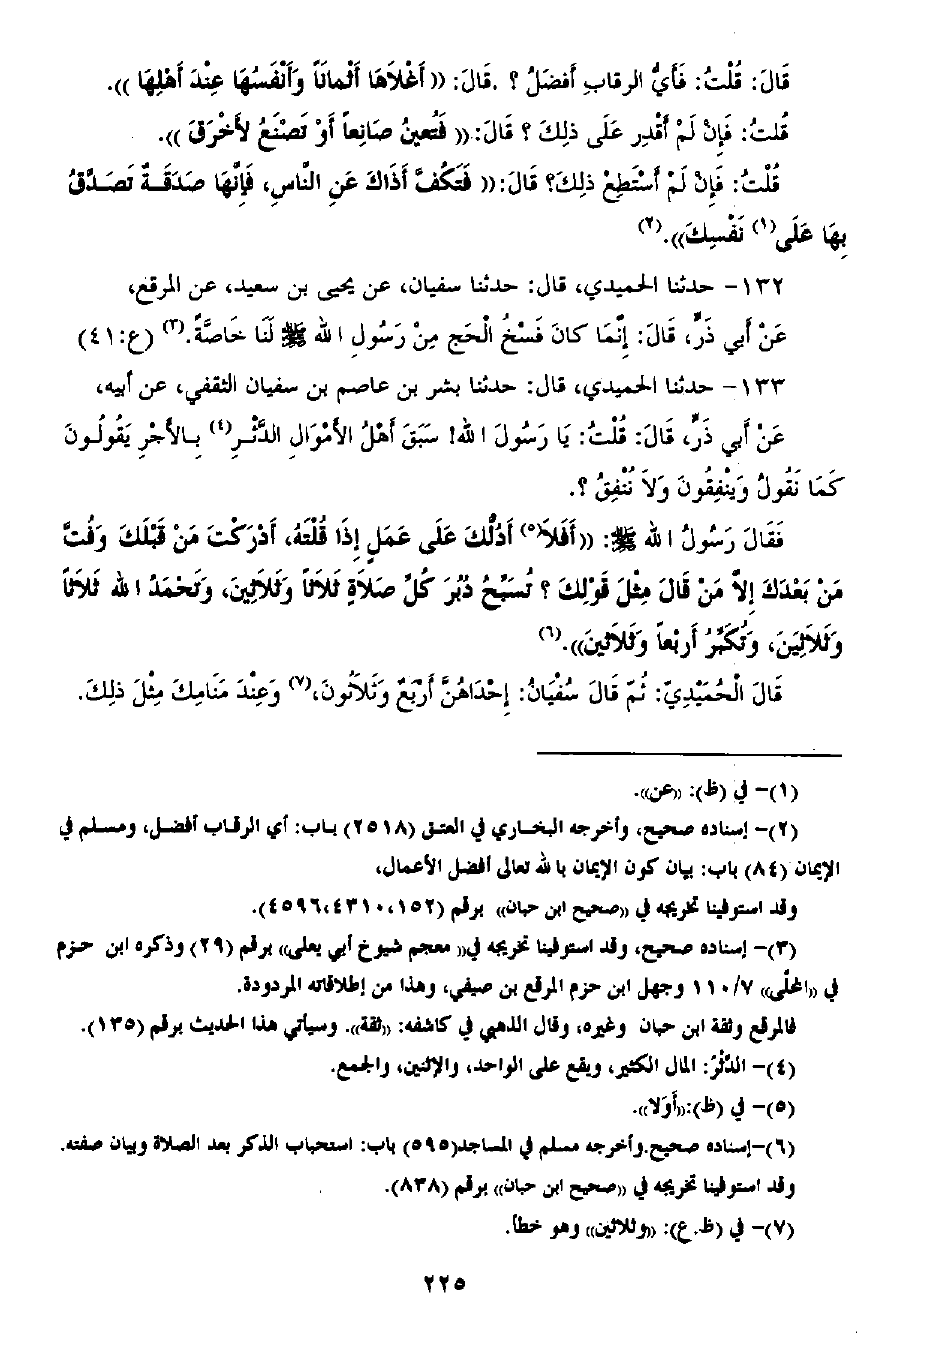 قَالَ: قُلْتُ: فَأَيُّ الرقابِ أَفضَلُ ؟ .قَالَ: (( أَغْلَاهَا أَثْمانَاً وَأَنْفَسُهَا عِنْدَ أَهْلِهَا )).
قُلتُ: فَإِنْ لَمْ أَقْدِر عَلَى ذلِكَ ؟ قَالَ:(( فَتُعينُ صَانِعاً أَوْ تَصْنَعُ لأَخْرَقَ )).
قُلْتُ: فَإِنْ لَمْ أَسْتَطِعْ ذلِكَ؟ قَالَ:(( فَتَكُفَّ أَذَاكَ عَنِ النَّاسِ، فَإِنَّهَا صَدَقَةٌ تَصَدَّقُ
بِهَا عَلَى(١) نَفْسِكَ)).(٢)
١٣٢- حدثنا الحميدي، قال: حدثنا سفيان، عن يحيى بن سعيد، عن المرقع،
عَنْ أَبي ذَرٍّ، قَالَ: إِنَّمَا كانَ فَسْخُ الْحَجِ مِنْ رَسُولِ الله ﷺ لَنَا خَاصَّةً.(٣) (ع:٤١)
١٣٣- حدثنا الحميدي، قال: حدثنا بشر بن عاصم بن سفيان الثقفي، عن أبيه،
عَنْ أَبي ذَرٍّ، قَالَ: قُلْتُ: يَا رَسُولَ الله! سَبَقَ أَهْلُ الأَمْوَالِ الدَّثْرِ(٤) بِالأَجْرِ يَقُولُونَ
كَمَا نَقُولُ وَيُنْفِقُونَ وَلاَ نُنْفِقُ ؟.
فَقَالَ رَسُولُ الله ﷺ: ((أَفَلاَ(٥) أَدُلُّكَ عَلَى عَمَلٍ إِذَا قُلْتَهُ، أَدْرَكْتَ مَنْ قَبْلَكَ وَفُتَّ
مَنْ بَعْدَكَ إِلاَّ مَنْ قَالَ مِثْلَ قَوْلِكَ ؟ تُسَبِّحُ دُبُرَ كُلِّ صَلاَةٍ ثَلاَثاً وَثَلاَثِينَ، وَتَحْمَدُ الله ثَلاَثاً
وَثَلاَثِيَنَ، وَتُكَبِّرُ أَربْعاً وَثَلاَثينَ)).(٦)
قَالَ الْحُمَيْدِيّ: ثُمّ قَالَ سُفْيَانُ: إِحْدَاهُنَّ أَرْبَعٌ وَثَلاَثُونَ،(٧) وَعِنْدَ مَنَامِكَ مِثْلَ ذلِكَ.
(١)- في (ظ): ((عن)).
(٢)- إسناده صحيح، وأخرجه البخاري في العتق (٢٥١٨) باب: أي الرقاب أفضل، ومسلم في
الإيمان (٨٤) باب: بيان كون الإيمان بالله تعالى أفضل الأعمال،
وقد استوفينا تخريجه في ((صحيح ابن حبان)) برقم (١٥٢،٤٣١٠،٤٥٩٦).
(٣)- إسناده صحيح، وقد استوفينا تخريجه في(( معجم شيوخ أبي يعلى)) برقم (٢٩) وذكره ابن حزم
في ((المحلّى)) ١١٠/٧ وجهل ابن حزم المرقع بن صيفي، وهذا من إطلاقاته المردودة.
فالمرقع وثقة ابن حبان وغيره، وقال الذهبي في كاشفه: ((ثقة)). وسيأتي هذا الحديث برقم (١٣٥).
(٤)- الدَّثْرُ: المال الكثير، ويقع على الواحد، والإثنين، والجمع.
(٥)- في (ظ):((أَوَلا)).
(٦)-إسناده صحيح.وأخرجه مسلم في المساجد(٥٩٥) باب: استحباب الذكر بعد الصلاة وبيان صفته.
وقد استوفينا تخريجه في ((صحيح ابن حبان)) برقم (٨٣٨).
(٧)- في (ظ.ع): ((وثلاثين)) وهو خطأ.
٢٢٥